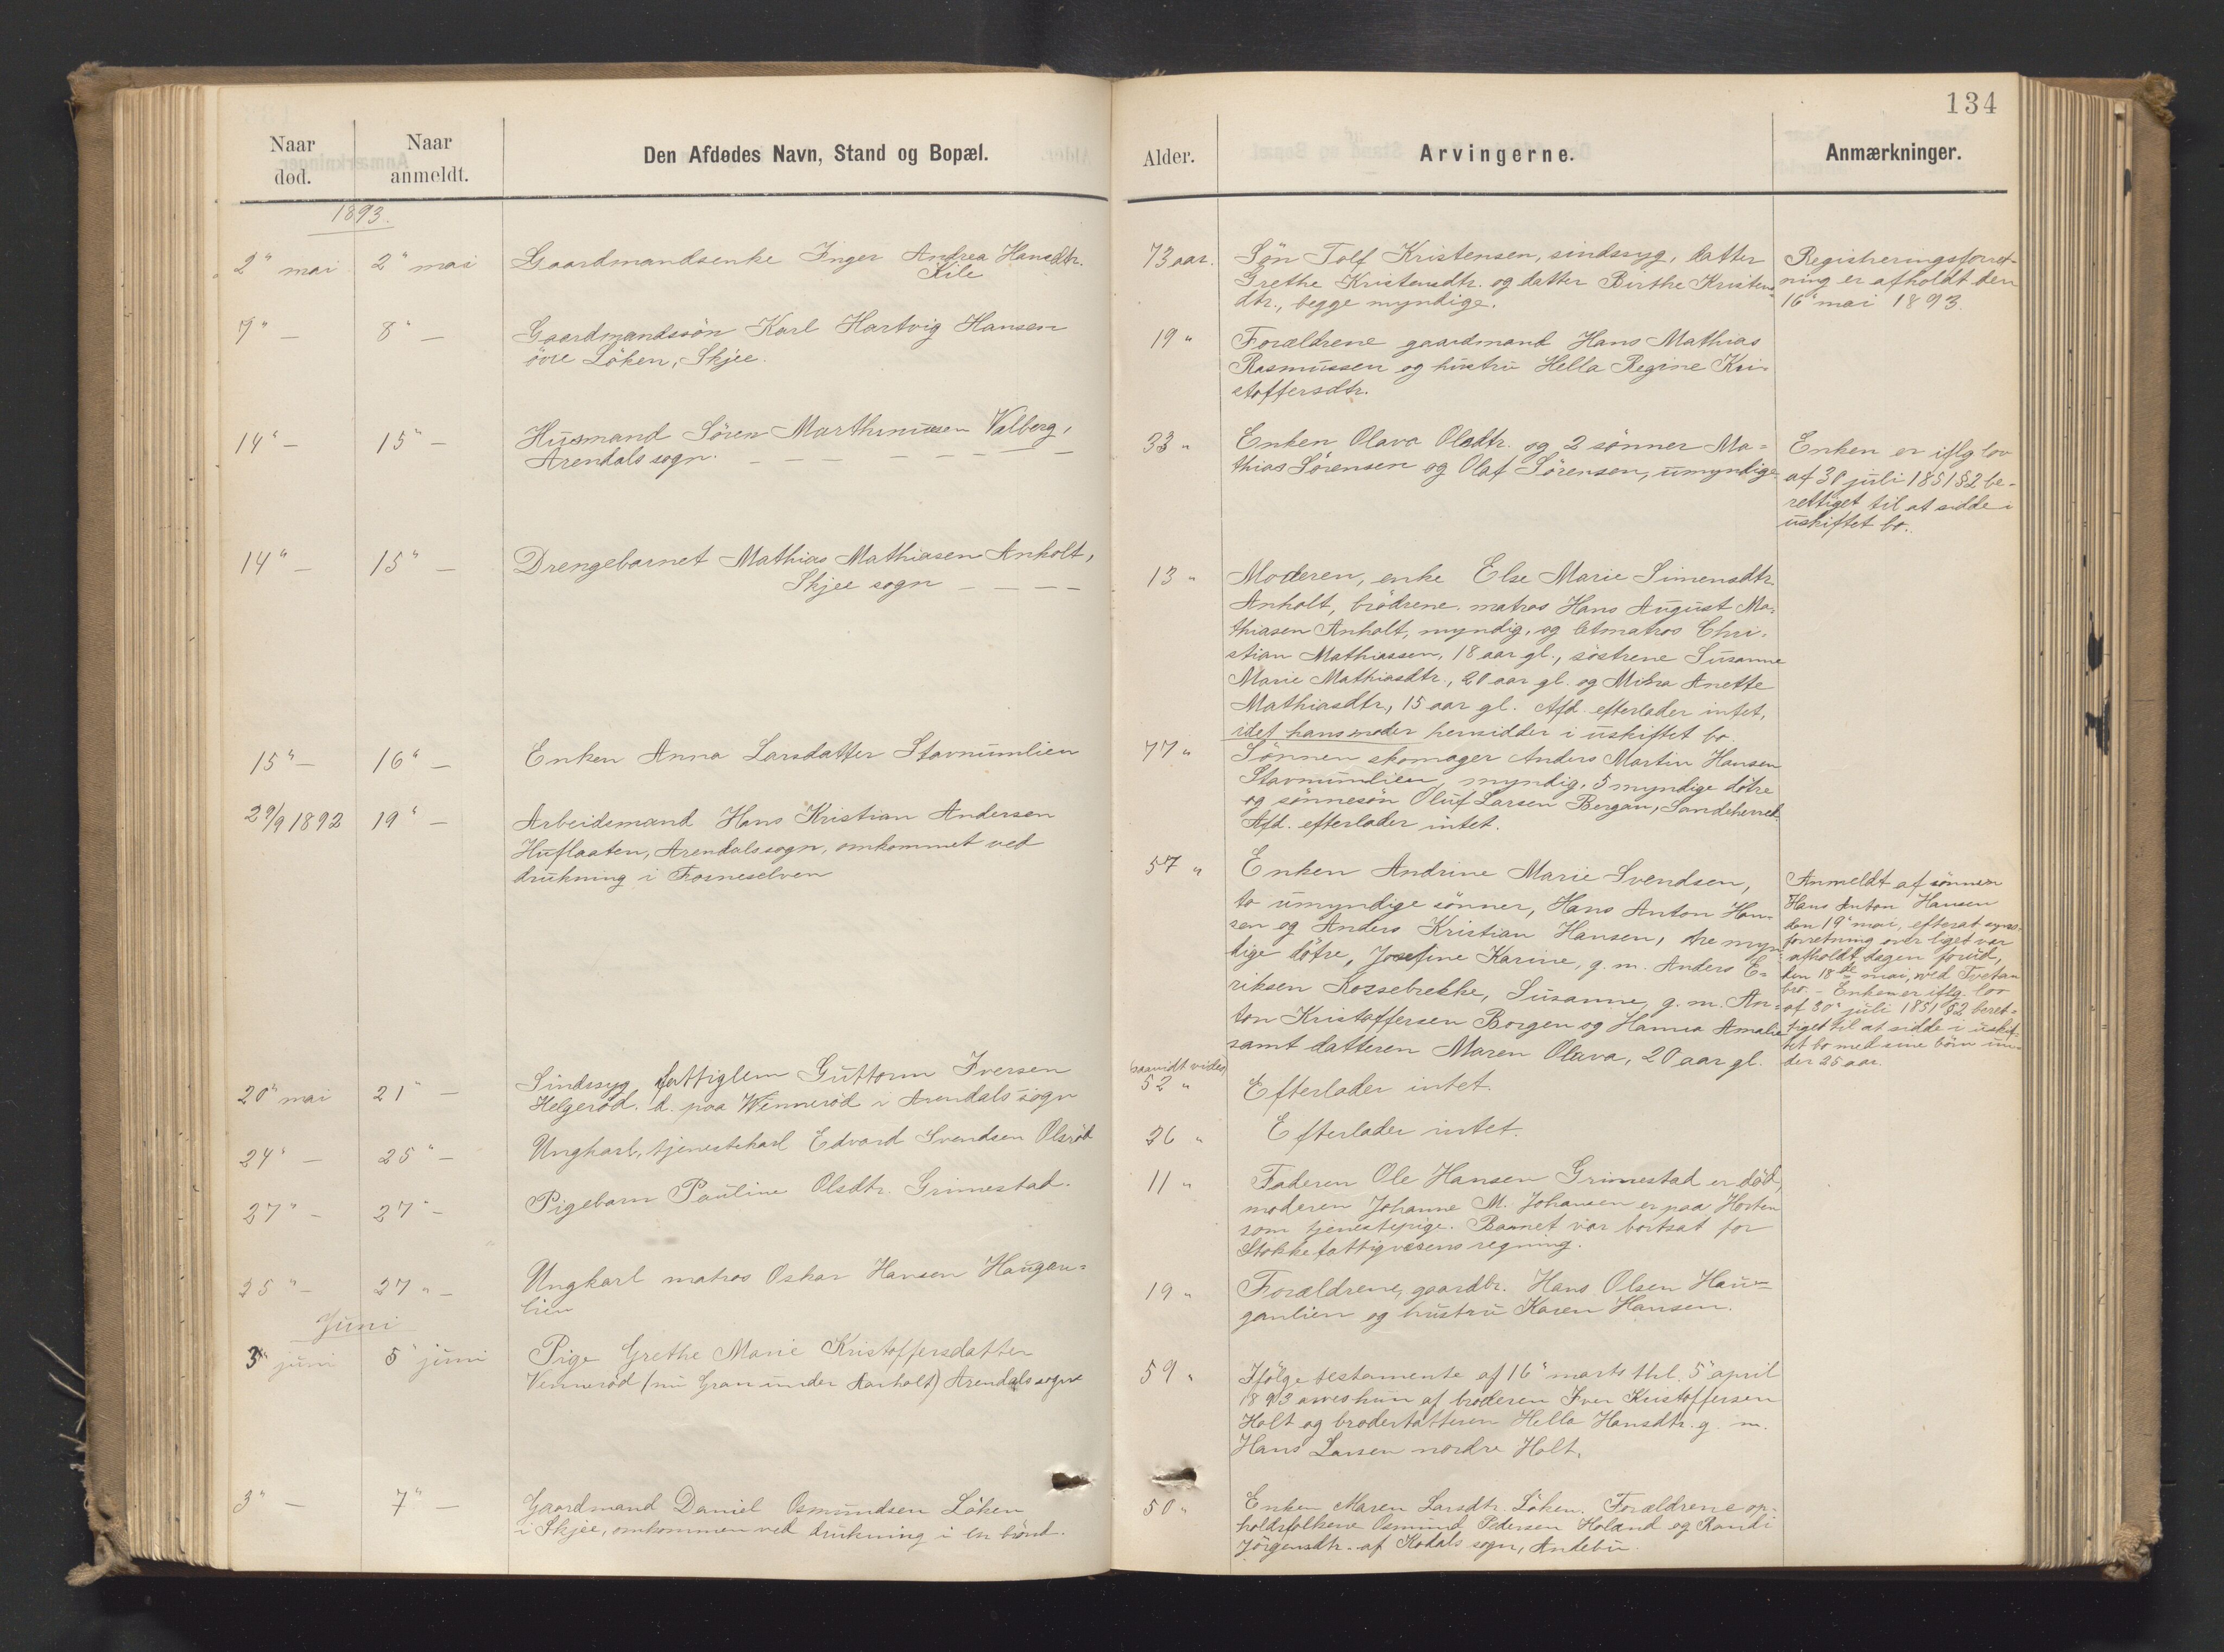 134
Naar død.
Naar anmeldt.
Den Afdødes Navn, Stand og Bopæl.
Alder.
Arvingerne.
Anmærkninger.
1893.
2" mai
2" mai
Gaardmandsenke Inger Andrea Hansdtr.
Kile
73 aar.
Søn Tolf Kristensen, sindssyg, datter
Grethe Kristensdtr. og datter Birthe Kristens
dtr., begge myndige.
Registreringsforret-
ning er afholdt den
16" mai 1893.
7" —
8" —
Gaardmandssön Karl Hartvig Hansen
övre Löken, Skjee.
19 "
Forældrene gaardmand Hans Mathias
Rasmussen og hustru Hella Regine Kri-
stoffersdtr.
14" —
15" —
Husmand Sören Marthinussen Valberg,
Arendals sogn.
33 "
Enken Olava Olsdtr. og 2 sönner Ma=
thias Sörensen og Olaf Sörensen, umyndige.
Enken er iflg lov
af 30 juli 1851 §2 be-
rettiget til at sidde i
uskiftet bo.
14" —
15" —
Drengebarnet Mathias Mathiasen Anholt,
Skjee sogn
13 "
Moderen, enke Else Marie Simensdtr.
Anholt, brödrene matros Hans August Ma=
thiasen Anholt, myndig, og letmatros Chri-
stian Mathiassen, 18 aar gl., söstrene Susanne
Marie Mathiasdtr., 20 aar gl. og Anette
Mathiasdtr, 15 aar gl. Afd. efterlader intet,
idet hans moder hensidder i uskiftet bo.
15" —
16" —
Enken Anna Larsdatter Stavnumlien
77 "
Sönnen skomager Anders Martin Hansen
Stavnumlien, myndig, 5 myndige dötre
og sönnesön Oluf Larsen Bergan, Sandeherred.
Afd. efterlader intet.
29/9 1892
19" —
Arbeidsmand Hans Kristian Andersen
Huflaaten, Arendals sogn, omkommet ved
drukning i Fosneselven
57 "
Enken Andrine Marie Svendsen,
to umyndige sönner, Hans Anton Han-
sen og Anders Kristian Hansen, tre myn-
dige dötre, Josefine Karine, g. m. Anders E=
riksen Rossebrekke, Susanne, g. m. An-
ton Kristoffersen Borgen og Hanna Amalie
samt datteren Maren Olava, 20 aar gl.
Anmeldt af sönnen
Hans Anton Hansen
den 19" mai, efterat syns-
forretning over liget var
afholdt dagen forud,
den 18de mai, ved Tvetan
bro. - Enken er iflg. lov
af 30" juli 1851 §2 beret-
tiget til at sidde i uskif-
tet bo med sine börn un-
der 25 aar.
20" mai
21" —
Sindssyg fattiglem Guttorm Iversen
Helgeröd. d. paa Wenneröd i Arendals sogn
saavidt vides
52 "
Efterlader intet.
24" —
25" —
Ungkarl, tjenestekarl Edvard Svendsen Olsröd
26 "
Efterlader intet.
27" —
27" —
Pigebarn Pauline Olsdtr. Grimestad.
11 "
Faderen Ole Hansen Grimestad er död,
moderen Johanne M. Johansen er paa Horten
som tjenestepige. Barnet var bortsat for
Stokke fattigvesens regning.
25" —
27" —
Ungkarl matros Oskar Hansen Haugan=
lien
19 "
Forældrene, gaardbr. Hans Olsen Hau=
ganlien og hustru Karen Hansen.
Juni
3" juni
5" juni
Pige Grethe Marie Kristoffersdatter
Venneröd (nu Gran under Aarholt) Arendals sogn
59 "
Ifölge testamente af 16" marts thl. 5" april
1893 arves hun af broderen Iver Kristoffersen
Holt og broderdatteren Hella Hansdtr. g. m.
Hans Larsen nordre Holt.
3" —
7" —
Gaardmand Daniel Osmundsen Löken
i Skjee, omkommen ved drukning i en brönd.
50 "
Enken Maren Larsdtr. Löken. Forældrene op-
holdsfolkene Osmund Pedersen Holand og Randi
Jörgensdtr. af Kodals sogn, Andebu.